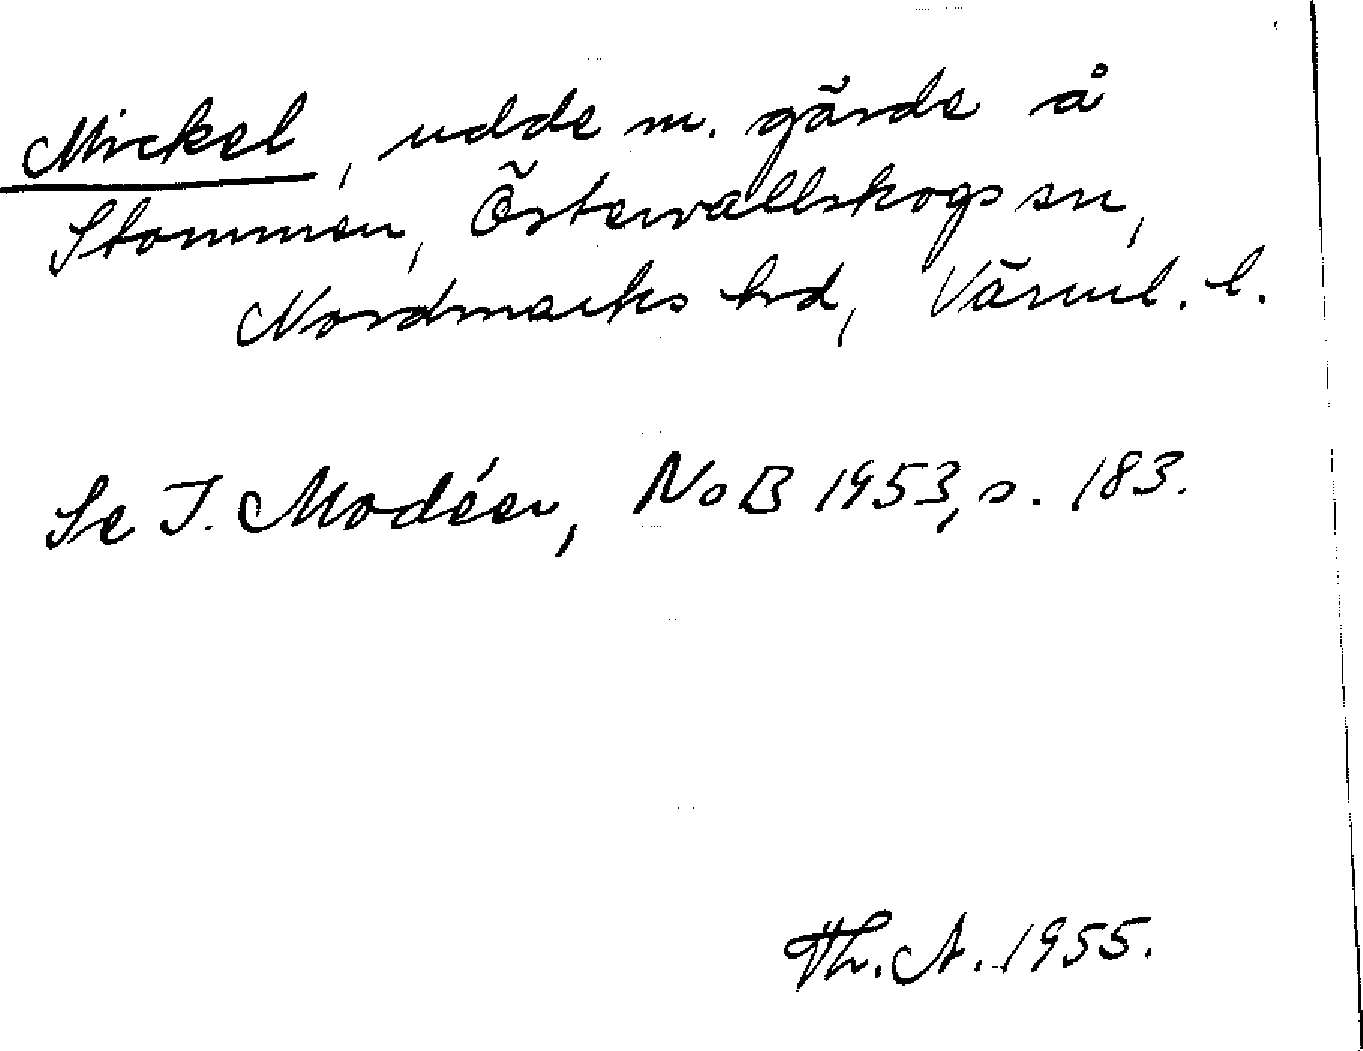 Mickel, udde m. gärde å
Stommen, Östervallskogs sn,
Nordmarks hd, Värml. l.
Se I. Modéer, NoB 1953, s. 183.
Th. A. 1955.